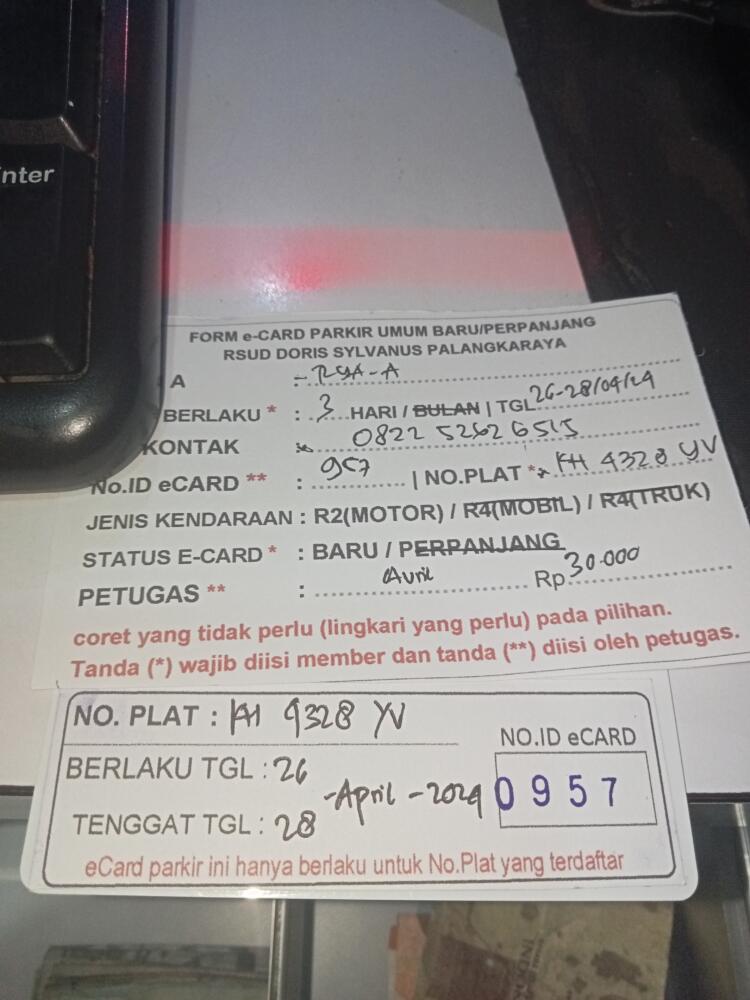 nter
FORM e-CARD PARKIR UMUM BARU/PERPANJANG
RSUD DORIS SYLVANUS PALANGKARAYA
A : - RYA-A
BERLAKU * : 3 HARI / BULAN | TGL 26-28/04/24
KONTAK : 0822 5262 6515
No.ID eCARD ** : 957 | NO.PLAT * KH 4328 YV
JENIS KENDARAAN : R2(MOTOR) / R4(MOBIL) / R4(TRUK)
STATUS E-CARD * : BARU / PERPANJANG
PETUGAS ** : Avril Rp 30.000
coret yang tidak perlu (lingkari yang perlu) pada pilihan.
Tanda (*) wajib diisi member dan tanda (**) diisi oleh petugas.
NO. PLAT : KH 4328 YV
BERLAKU TGL : 26
-April-2024
TENGGAT TGL : 28
NO.ID eCARD
0957
eCard parkir ini hanya berlaku untuk No.Plat yang terdaftar